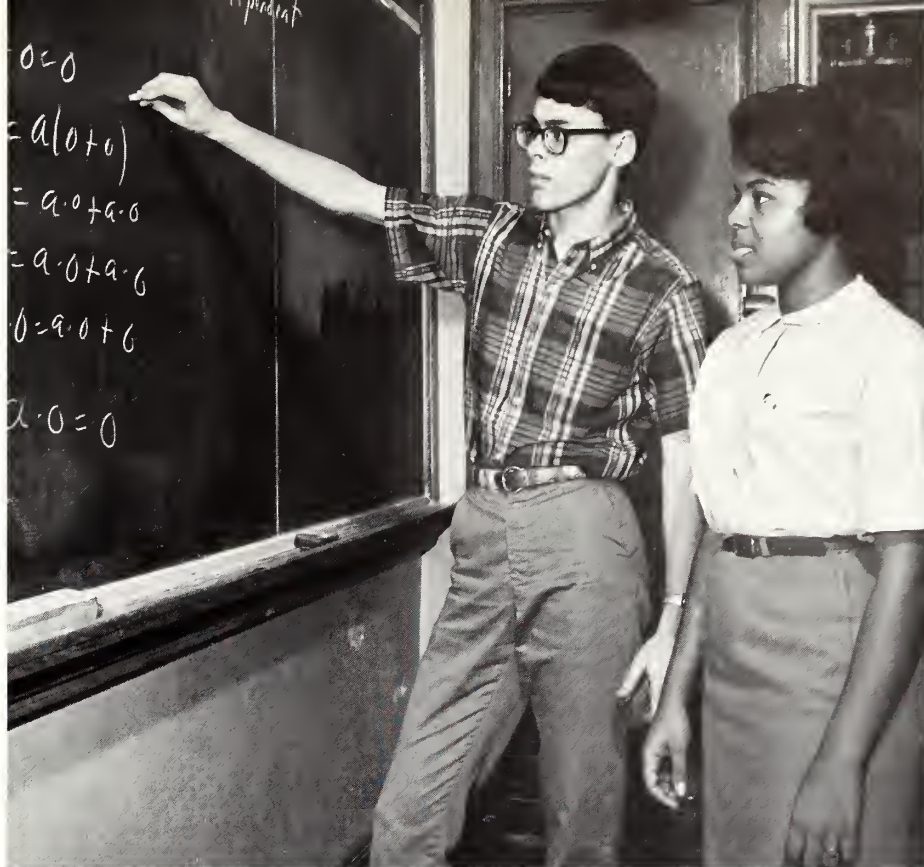 0=0
= a(0+0)
= a·0+a·0
= a·0+a·0
·0=a·0+0
a·0=0